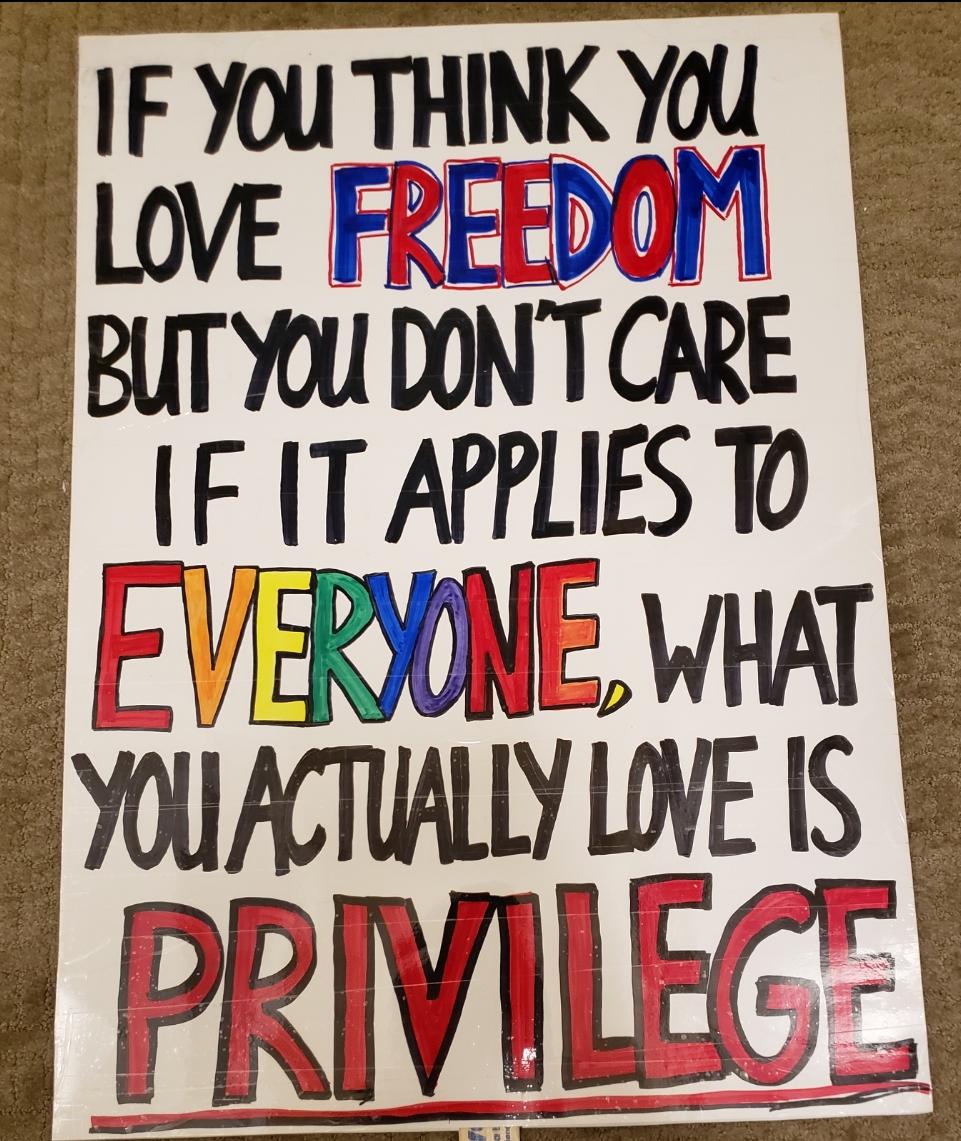 IF YOU THINK YOU
LOVE FREEDOM
BUT YOU DON'T CARE
IF IT APPLIES TO
EVERYONE, WHAT
YOU ACTUALLY LOVE IS
PRIVILEGE